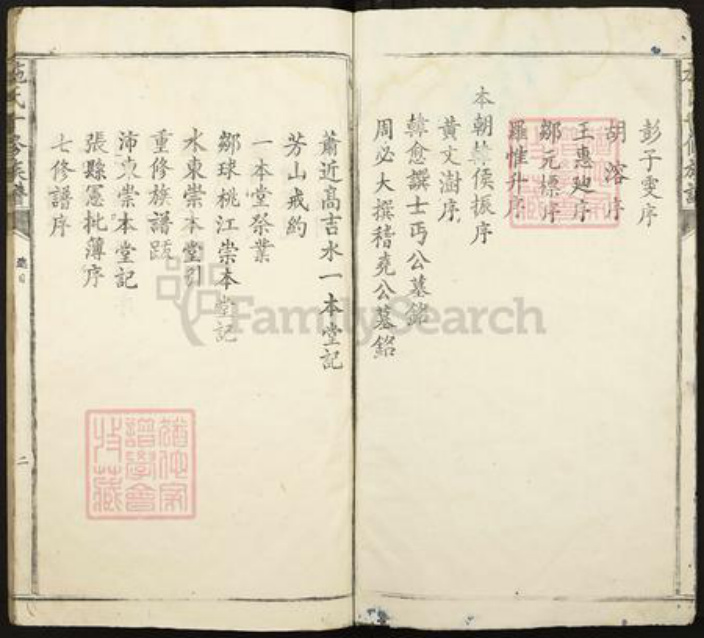 彭子雯序
胡溶序
王惠廸序
鄒元標序
羅惟升序
本朝韓侯振序
黃文澍序
韓愈撰士丐公墓銘
周必大撰稽堯公墓銘
蕭近高吉水一本堂記
芳山戒約
一本堂祭業
鄒球桃江崇本堂記
水東崇本堂引
重修族譜跋
沛東崇本堂記
張縣憲批薄序
七修譜序
二
FamilySearch